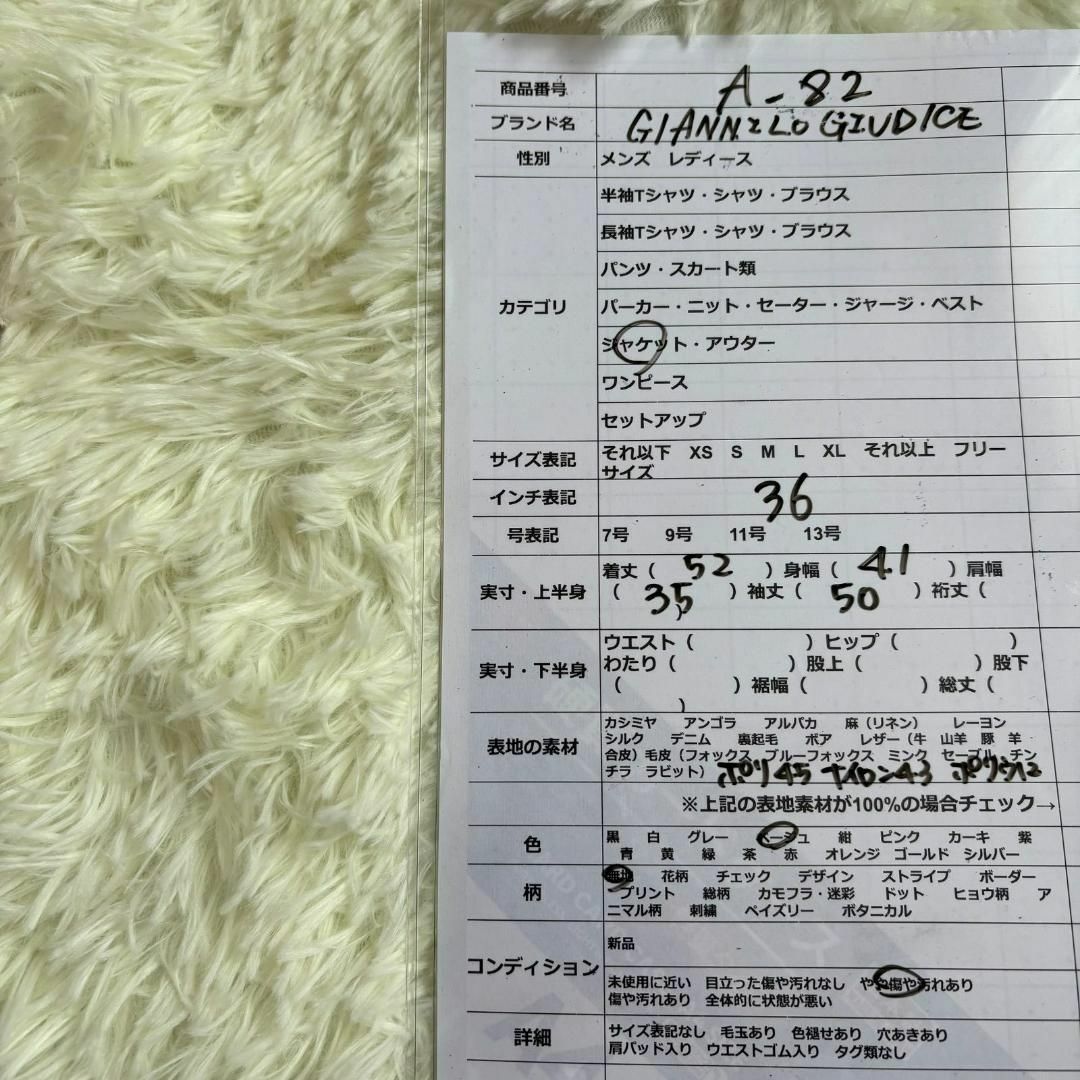 商品番号 A-82
ブランド名 GIANNI LO GIUDICE
性別 メンズ レディース
カテゴリ
半袖Tシャツ・シャツ・ブラウス
長袖Tシャツ・シャツ・ブラウス
パンツ・スカート類
パーカー・ニット・セーター・ジャージ・ベスト
ジャケット・アウター
ワンピース
セットアップ
サイズ表記 それ以下 XS S M L XL それ以上 フリー
サイズ
インチ表記 36
号表記 7号 9号 11号 13号
実寸・上半身
着丈（ 52 ）身幅（ 41 ）肩幅
（ 35 ）袖丈（ 50 ）裄丈（
）
実寸・下半身
ウエスト（ ）ヒップ（ ）
わたり（ ）股上（ ）股下
（ ）裾幅（ ）総丈（
）
表地の素材
カシミヤ アンゴラ アルパカ 麻（リネン） レーヨン
シルク デニム 裏起毛 ボア レザー（牛 山羊 豚 羊
合皮）毛皮（フォックス ブルーフォックス ミンク セーブル チン
チラ ラビット） ポリ45 ナイロン43 ポリウ12
※上記の表地素材が100%の場合チェック→
色
黒 白 グレー ベージュ 紺 ピンク カーキ 紫
青 黄 緑 茶 赤 オレンジ ゴールド シルバー
柄
無地 花柄 チェック デザイン ストライプ ボーダー
プリント 総柄 カモフラ・迷彩 ドット ヒョウ柄 ア
ニマル柄 刺繍 ペイズリー ボタニカル
コンディション
新品
未使用に近い 目立った傷や汚れなし やや傷や汚れあり
傷や汚れあり 全体的に状態が悪い
詳細
サイズ表記なし 毛玉あり 色褪せあり 穴あきあり
肩パッド入り ウエストゴム入り タグ類なし